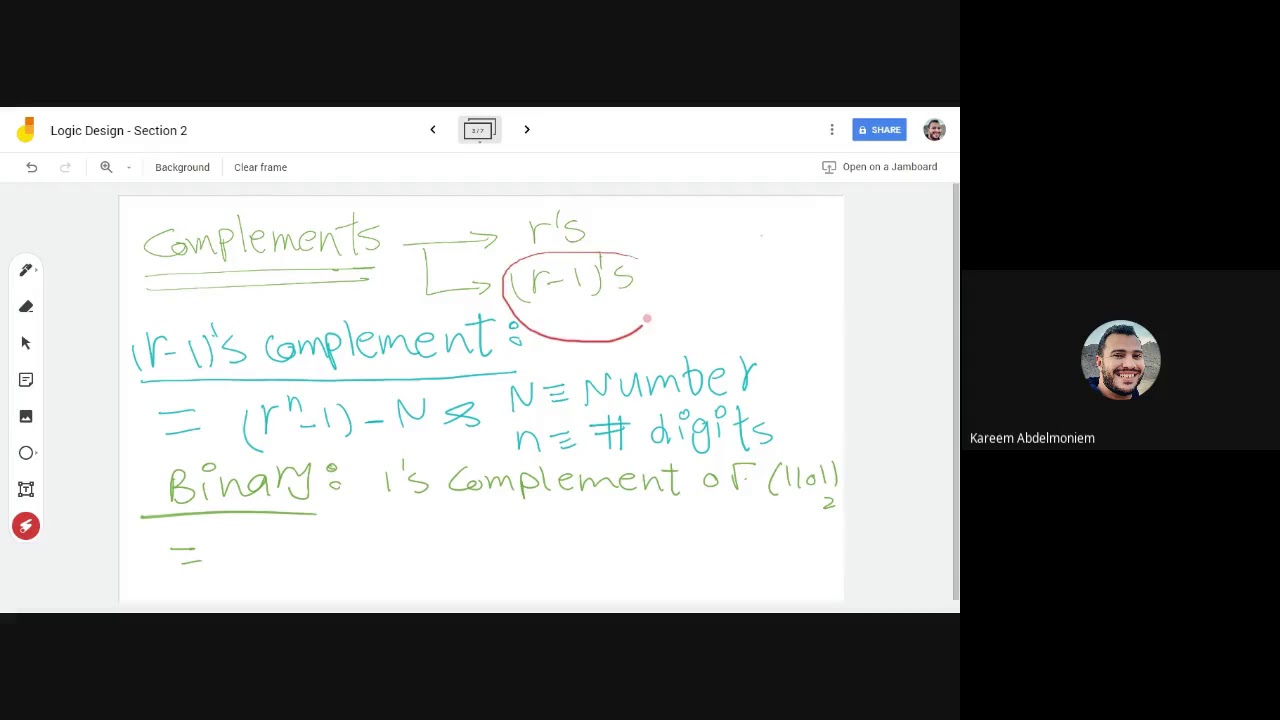 Logic Design - Section 2
3 / 7
SHARE
Background
Clear frame
Open on a Jamboard
Complements → r's
(r-1)'s
(r-1)'s complement:
= (rⁿ-1) - N & N ≡ Number
n ≡ # digits
Binary: 1's complement of (1101)₂
=
Kareem Abdelmoniem